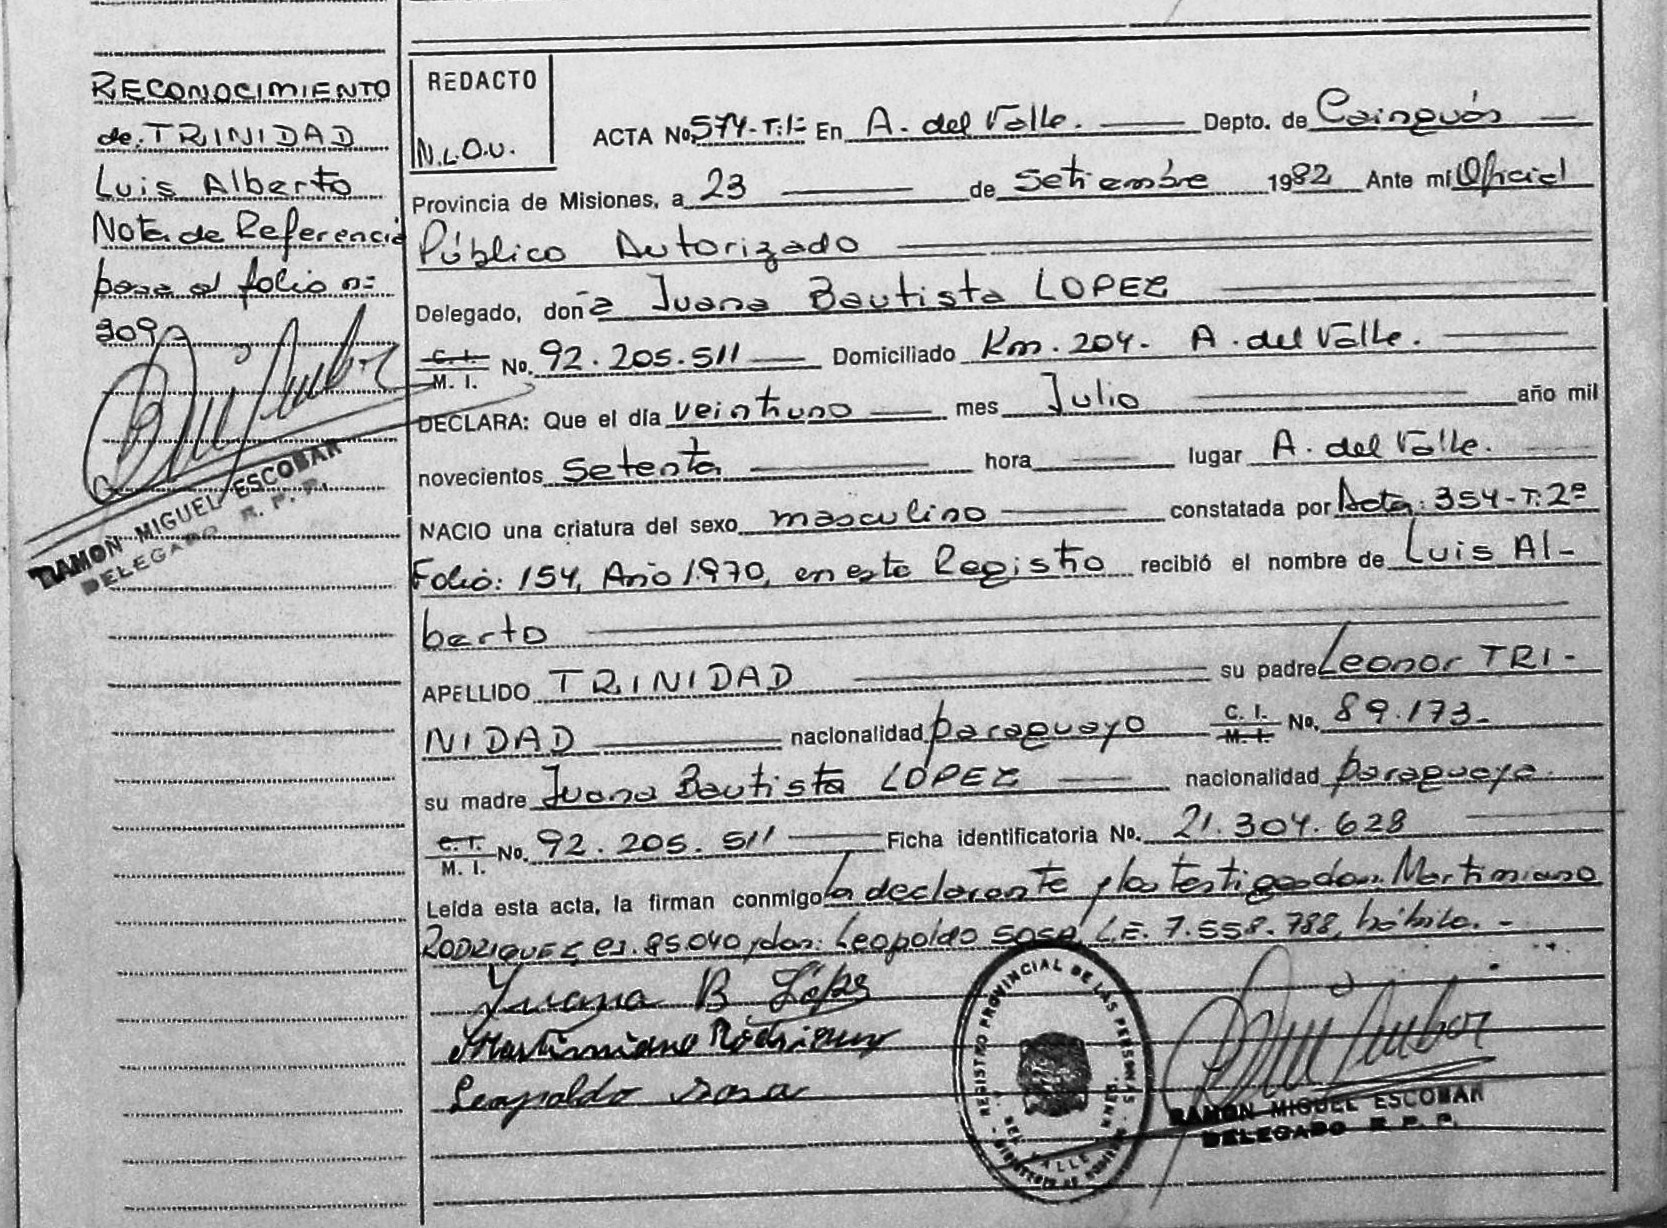 RECONOCIMIENTO
de. TRINIDAD
Luis Alberto
Nota de Referencia
pasa al folio n=
209
RAMON MIGUEL ESCOBAR
DELEGADO R. P. P.
REDACTO
N.L.O.U.
ACTA No. 574-T:1= En A. del Valle. Depto. de Cainguás
Provincia de Misiones, a 23 de Setiembre 1982 Ante mi Oficial
Público Autorizado
Delegado, doña Juana Bautista LOPEZ
C. I. M. I. No. 92.205.511 Domiciliado Km. 204. A. del Valle.
DECLARA: Que el día veintiuno mes Julio año mil
novecientos setenta hora lugar A. del Valle.
NACIO una criatura del sexo masculino constatada por Acta: 354-T:2º
Folio: 154, Año 1.970, en este Registro recibió el nombre de Luis Al-
berto
APELLIDO TRINIDAD su padre Leonor TRI-
NIDAD nacionalidad paraguayo C. I. M. I. No. 89.173.-
su madre Juana Bautista LOPEZ nacionalidad paraguaya.
C. I. M. I. No. 92.205.511 Ficha identificatoria No. 21.304.628
Leída esta acta, la firman conmigo la declarante y los testigos don: Martimiano
RODRIGUEZ CI. 85.040 y don: Leopoldo SOSA, L.E. 7.558.788, hábiles.-
Juana B López
Martimiano Rodriguez
Leopoldo Sosa
REGISTRO PROVINCIAL DE LAS PERSONAS
DEL VALLE
RAMON MIGUEL ESCOBAR
DELEGADO R. P. P.